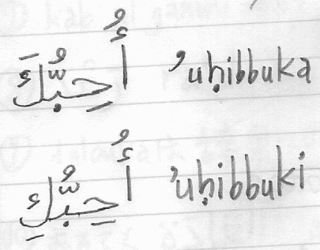 أُحِبُّكَ ʼuḥibbuka
أُحِبُّكِ ʼuḥibbuki